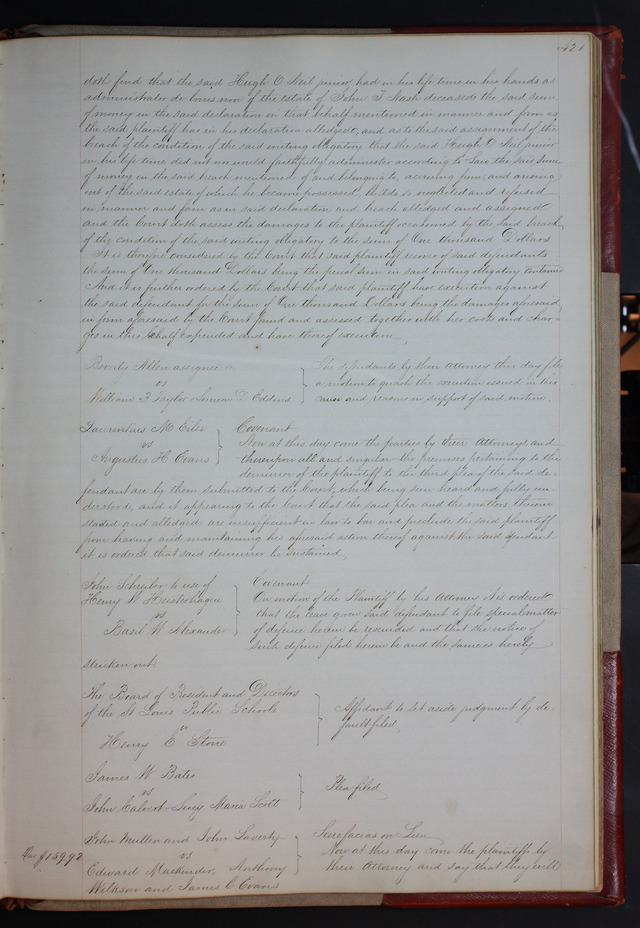 421
doth find that the said Hugh O Neil junior had in his life time in his hands as
administrator de bonis non of the estate of John F Nash deceased the said sum
of money in the said declaration in that behalf mentioned in manner and form as
the said plaintiff has in his declaration alledged, and as to the said assignment of the
breach of the condition of the said writing obligatory that the said Hugh O Neil junior
in his life time did not nor would faithfully administer according to Law the said sum
of money in the said breach mentioned of and belonging to, accruing from, and arising
out of the said estate of which he became possessed, but so to do neglected and refused
in manner and form as in said declaration and breach alledged and assigned
and the Court doth assess the damages to the plaintiff occasioned by the said breach
of the condition of the said writing obligatory to the sum of One thousand Dollars
It is therefore considered by the Court that said plaintiff recover of said defendants
the sum of One thousand Dollars being the penal sum in said writing obligatory contained
And it is further ordered by the Court that said plaintiff have execution against
the said defendant for the sum of One thousand Dollars being the damages aforesaid
in form aforesaid by the Court found and assessed together with her costs and char-
ges in this behalf expended and have thereof execution.
Beverly Allen assignee
vs
William F Taylor Simeon D Eddens
The defendants by their Attorney this day file
a motion to quash the execution issued in this
cause and reasons in support of said motion.
Laurentius M Eiler
vs
Augustus H Evans
Covenant
Now at this day come the parties by their Attorneys, and
thereupon all and singular the premises pertaining to the
demurrer of the plaintiff to the third plea of the said de-
fendant are by them submitted to the Court, which being seen heard and fully un-
derstood, and it appearing to the Court that the said plea and the matters therein
stated and alledged are insufficient in law to bar and preclude the said plaintiff
from having and maintaining his aforesaid action thereof against the said defendant
it is ordered that said demurrer be sustained.
John Schreiber to use of
Henry W Heisterhagen
vs
Basil W Alexander
Covenant
On motion of the Plaintiff by his Attorney it is ordered
that the leave given said defendant to file special matter
of defence herein be rescinded and that the notice of
such defence filed herein be and the same is hereby
stricken out.
The Board of President and Directors
of the St Louis Public Schools
vs
Henry E Stone
Affidavit to set aside judgment by de-
fault filed.
James W Bates
vs
John Calvert Lucy Maria Scott
Plea filed
John Mullen and John Laverty
vs
Edward Mackinder, Anthony
Wilkson and James C Evans
Scire facias on Lien
Now at this day come the plaintiffs by
their Attorney and say that they will
$139.92